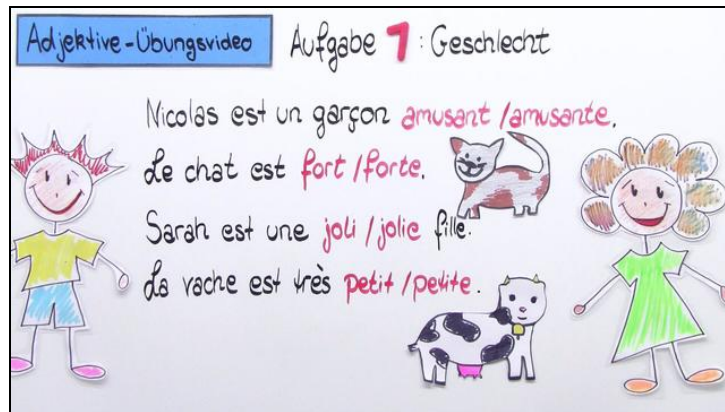 Adjektive-Übungsvideo
Aufgabe 1: Geschlecht
Nicolas est un garçon amusant/amusante.
Le chat est fort/forte.
Sarah est une joli/jolie fille.
La vache est très petit/petite.